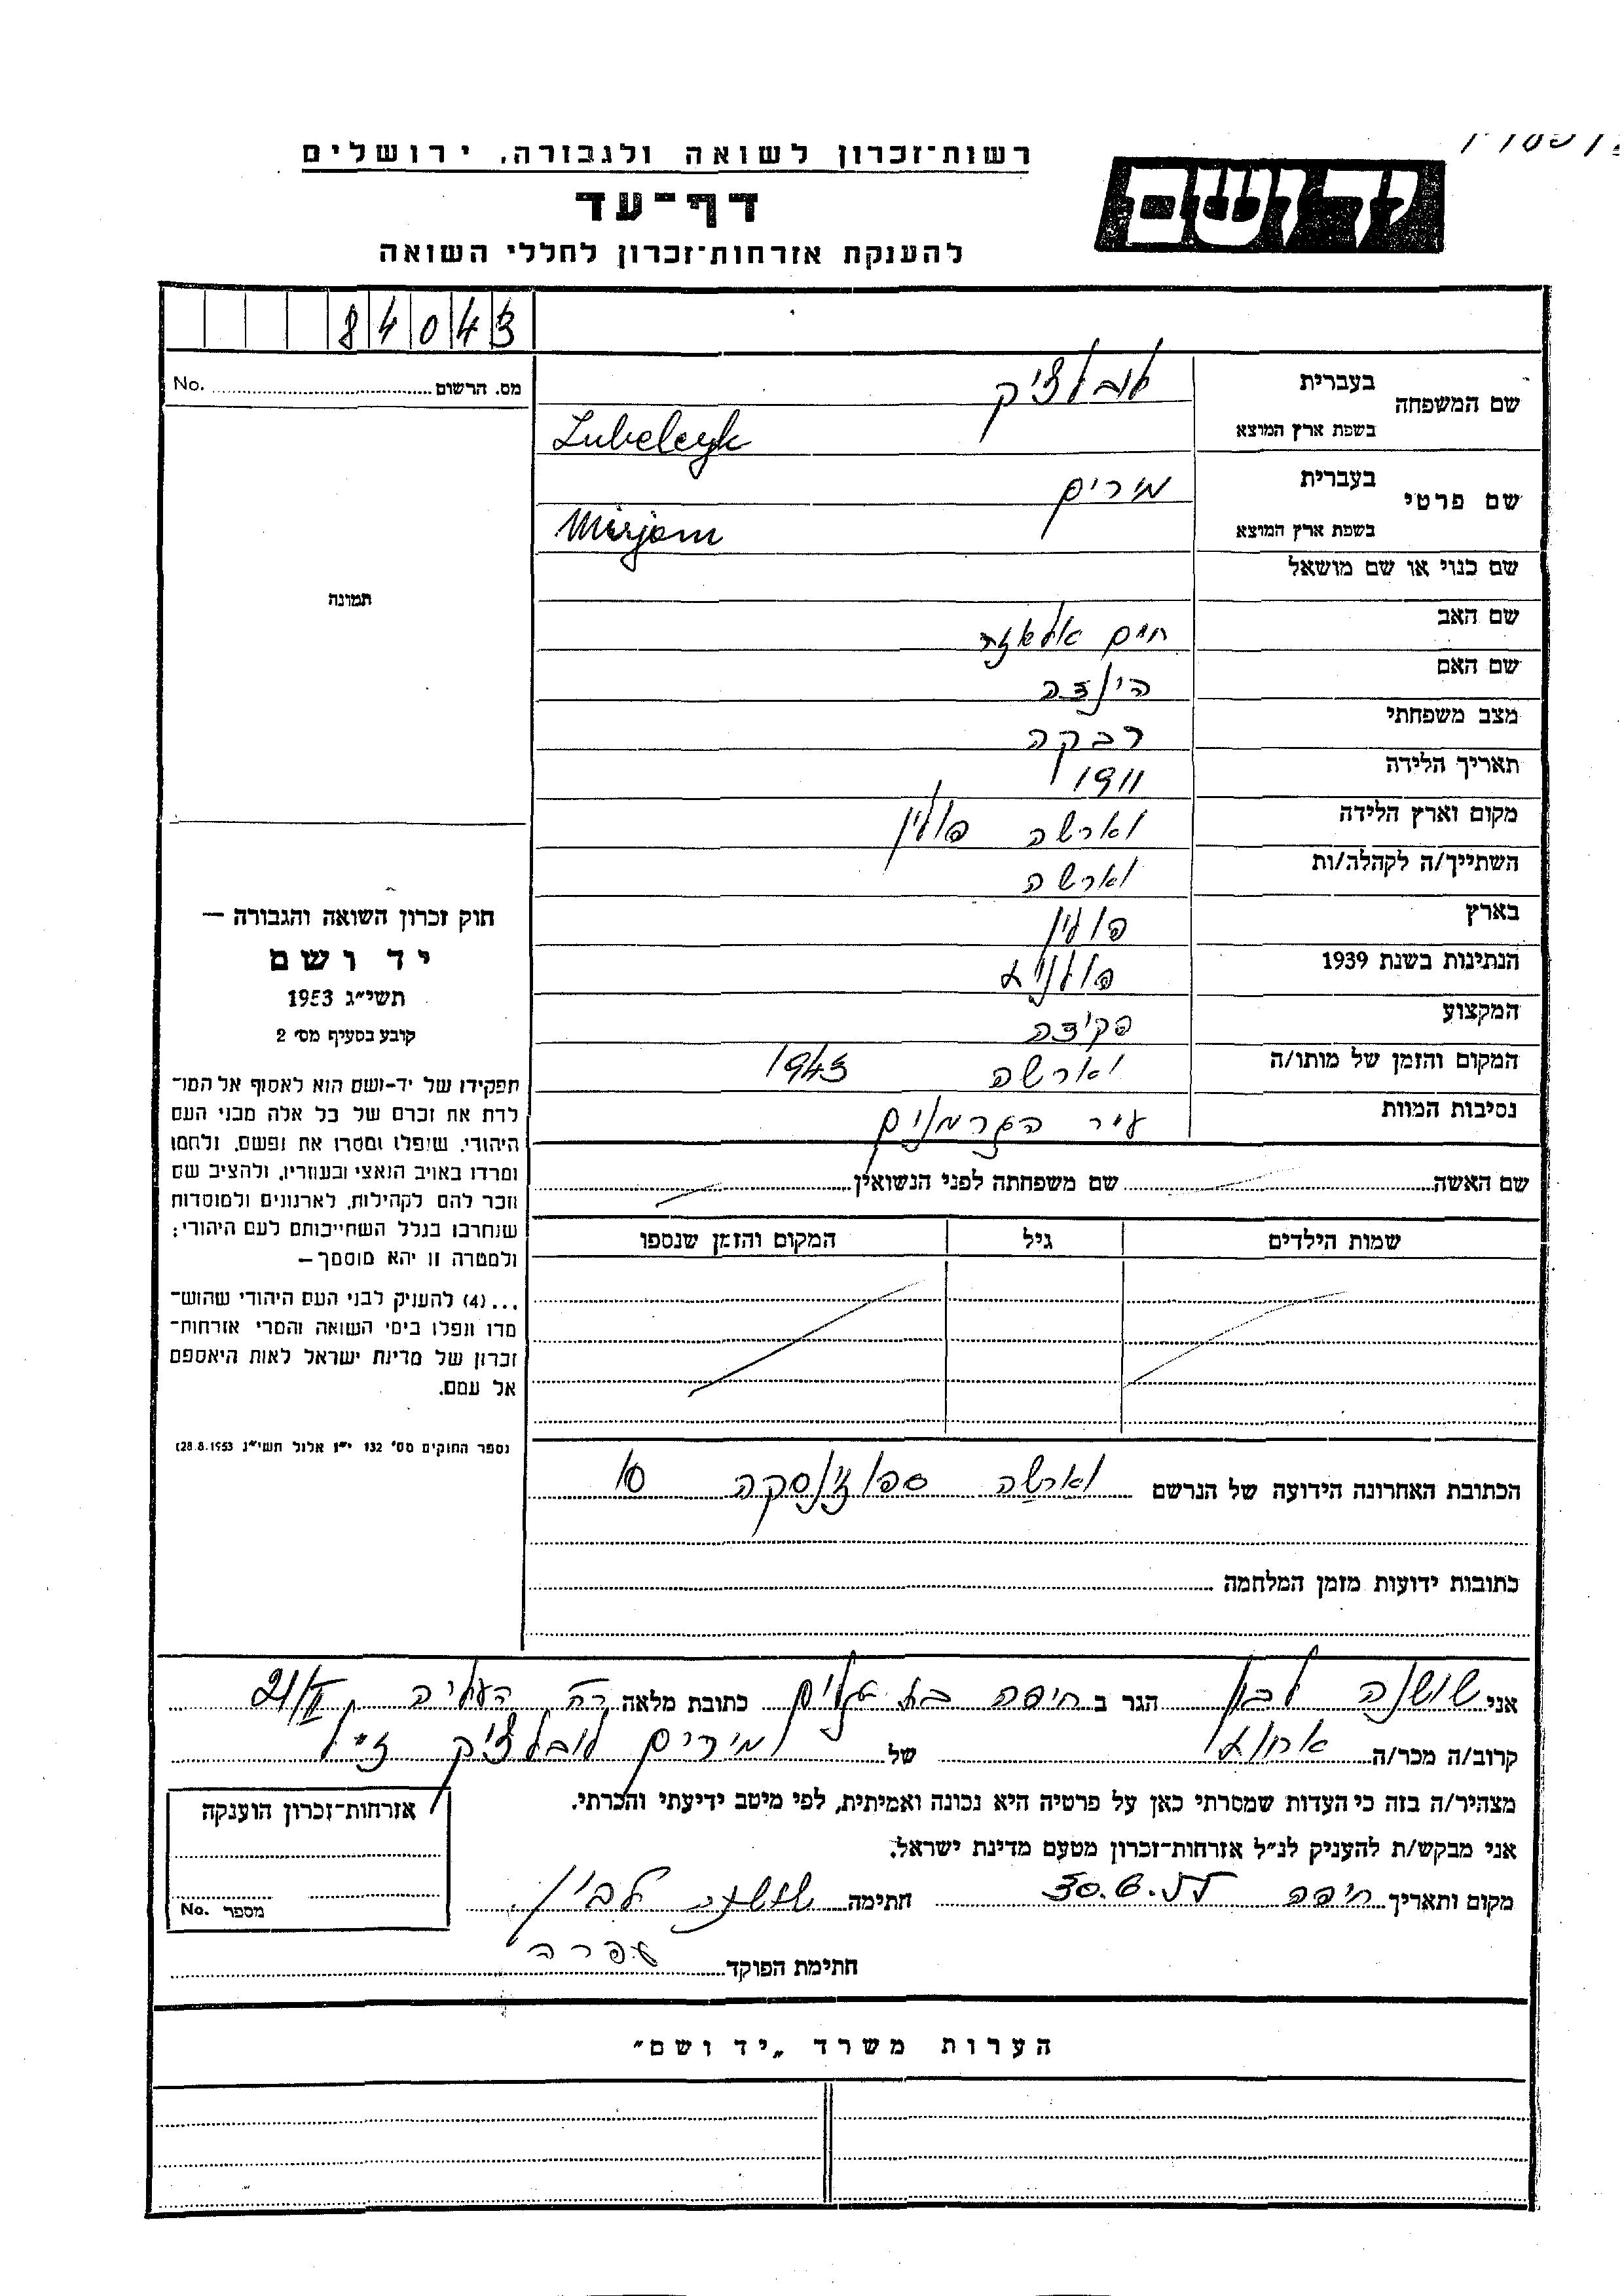 רשות־זכרון לשואה ולגבורה, ירושלים
דף־עד
להענקת אזרחות־זכרון לחללי השואה
יד ושם
84043
מס. הרשום No.
שם המשפחה
בעברית
בשפת ארץ המוצא Lubelczyk
שם פרטי
בעברית מירים
בשפת ארץ המוצא Mirjam
שם כנוי או שם מושאל
שם האב חיים אלעזר
שם האם הינדה
מצב משפחתי רבקה
תאריך הלידה 1911
מקום וארץ הלידה וארשה פולין
השתייך/ה לקהלה/ות וארשה
בארץ פולין
הנתינות בשנת 1939 פולניה
המקצוע פקידה
המקום והזמן של מותו/ה וארשה 1943
נסיבות המוות הגרמנים
שם האשה שם משפחתה לפני הנשואין
שמות הילדים גיל המקום והזמן שנספו
הכתובת האחרונה הידועה של הנרשם וארשה 10
כתובות ידועות מזמן המלחמה
תמונה
חוק זכרון השואה והגבורה —
יד ושם
תשי״ג 1953
קובע בסעיף מס׳ 2
תפקידו של יד-ושם הוא לאסוף אל המו־
לדת את זכרם של כל אלה מבני העם
היהודי, שנפלו ומסרו את נפשם, נלחמו
ומרדו באויב הנאצי ובעוזריו, ולהציב שם
וזכר להם לקהילות, לארגונים ולמוסדות
שנחרבו בגלל השתייכותם לעם היהודי;
ולמטרה זו יהא מוסמך—
...(4) להעניק לבני העם היהודי שהוש־
מדו ונפלו בימי השואה והמרי אזרחות־
זכרון של מדינת ישראל לאות היאספם
אל עמם.
(ספר החוקים מס׳ 132 י״ז אלול תשי״ג 28.8.1953)
אני שושנה לבין הגר ב חיפה בת גלים כתובת מלאה רח העליה 21/II
קרוב/ה מכר/ה אחות של מירים לובלציק ז״ל
מצהיר/ה בזה כי העדות שמסרתי כאן על פרטיה היא נכונה ואמיתית, לפי מיטב ידיעתי והכרתי.
אני מבקש/ת להעניק לנ״ל אזרחות־זכרון מטעם מדינת ישראל.
מקום ותאריך חיפה 30.6.55 חתימה שושנה לבין
חתימת הפוקד עפרה
אזרחות־זכרון הוענקה
מספר No.
הערות משרד „יד ושם״